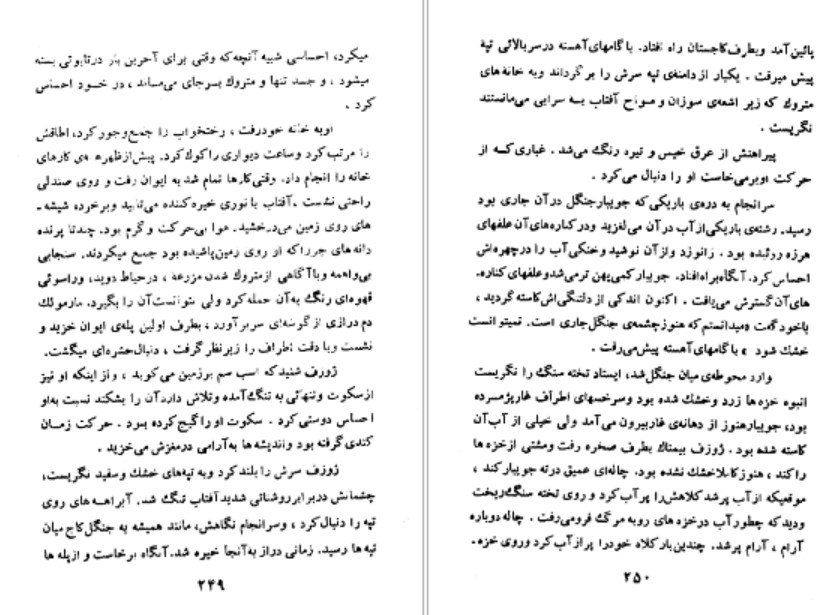 میکرد، احساسی شبیه آنچه که وقتی برای آخرین بار در تابوتی بسته
میشود ، و جسد تنها و متروك برجای می‌ماند ، در خـود احساس
کرد .
او به خانه خود رفت ، رختخواب را جمع و جور کرد، اطاقش
را مرتب کرد و ساعت دیواری را کوک کرد. پیش از ظهر همه‌ی کارهای
خانه را انجام داد. وقتی کارها تمام شد به ایوان رفت و روی صندلی
راحتی نشست . آفتاب با نوری خیره کننده می‌تابید و بر خرده شیشه ـ
های روی زمین می‌درخشید. هوا بی‌حرکت و گرم بود. چندتا پرنده
دانه‌های جو را که او روی زمین پاشیده بود جمع میکردند. سنجابی
بی‌واهمه و با آگاهی از متروك شدن مزرعه ، در حیاط دوید، و راسوئی
قهوه‌ای رنگ به آن حمله کرد ولی نتوانست آن را بگیرد. مارمولك
دم درازی از گوشه‌ای سر برآورد ، بطرف اولین پله‌ی ایوان خزید و
نشست و با دقت اطراف را زیر نظر گرفت ، دنبال حشره‌ای میگشت.
ژوزف شنید که اسب سم بر زمین می‌کوبد ، و از اینکه او نیز
از سکوت و تنهائی به تنگ آمده و تلاش دارد آن را بشکند نسبت به او
احساس دوستی کرد . سکوت او را گیج کرده بـود . حرکت زمـان
کندی گرفته بود و اندیشه‌ها به آرامی در مغزش می‌خزید .
ژوزف سرش را بلند کرد و به تپه‌های خشك و سفید نگریست،
چشمانش در برابر روشنائی شدید آفتاب تنگ شد. آبراهـه‌های روی
تپه را دنبال کرد ، و سرانجام نگاهش، مانند همیشه به جنگل کاج میان
تپه‌ها رسید. زمانی دراز به آنجا خیره شد. آنگاه برخاست و از پله‌ها
۲۴۹
پائین آمد و بطرف کاجستان راه افتاد. با گامهای آهسته در سربالائی تپه
پیش میرفت . یکبار از دامنه‌ی تپه سرش را برگرداند و به خانه‌های
متروك که زیر اشعه‌ی سوزان و مـواج آفتاب بـه سرابی می‌مانستند
نگریست .
پیراهنش از عرق خیس و تیره رنگ می‌شد . غباری کـه از
حرکت او برمی‌خاست او را دنبال می‌کرد .
سرانجام به دره‌ی باریکی که جویبار جنگل در آن جاری بود
رسید. رشته‌ی باریکی از آب در آن می‌لغزید و در کناره‌های آن علفهای
هرزه روئیده بود . زانو زد و از آن نوشید و خنکی آب را در چهره‌اش
احساس کرد. آنگاه براه افتاد. جویبار کمی پهن تر می‌شد و علفهای کناره.
های آن گسترش می‌یافت . اکنون اندکی از دلتنگی‌اش کاسته گردید ،
با خود گفت «میدانستم که هنوز چشمه‌ی جنگل جاری است. نمیتوانست
خشك شود » با گامهای آهسته پیش می‌رفت .
وارد محوطه‌ی میان جنگل شد، ایستاد تخته سنگ را نگریست
انبوه خزه‌ها زرد و خشك شده بود و سرخسهای اطراف غار پژمرده
بود، جویبار هنوز از دهانه‌ی غار بیرون می‌آمد ولی خیلی از آب آن
کاسته شده بود . ژوزف بیمناك بطرف صخره رفت و مشتی از خزه‌ها
را کند ، هنوز کاملا خشك نشده بود. چاله‌ای عمیق در ته جویبار کند ،
موقعیکه از آب پر شد کلاهش را پر آب کرد و روی تخته سنگ ریخت
و دید که چطور آب در خزه‌های رو به مرگ فرو می‌رفت . چاله دوباره
آرام ، آرام پر شد. چندین بار کلاه خود را پر از آب کرد و روی خزه.
۲۵۰